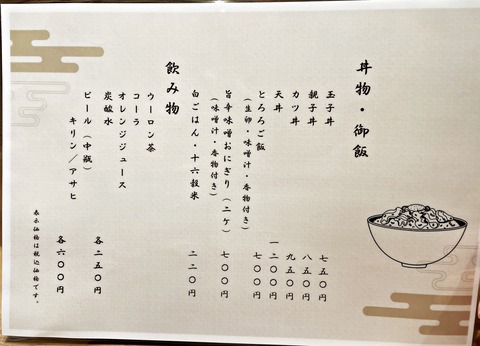 丼物・御飯
玉子丼 七五〇円
親子丼 八五〇円
カツ丼 九五〇円
天丼 一二〇〇円
とろろご飯 七〇〇円
(生卵・味噌汁・香物付き)
旨辛味噌おにぎり(二ケ) 七〇〇円
(味噌汁・香物付き)
白ごはん・十六穀米 二二〇円
飲み物
ウーロン茶
コーラ
オレンジジュース
炭酸水 各二五〇円
ビール(中瓶)
キリン/アサヒ 各六〇〇円
表示価格は税込価格です。